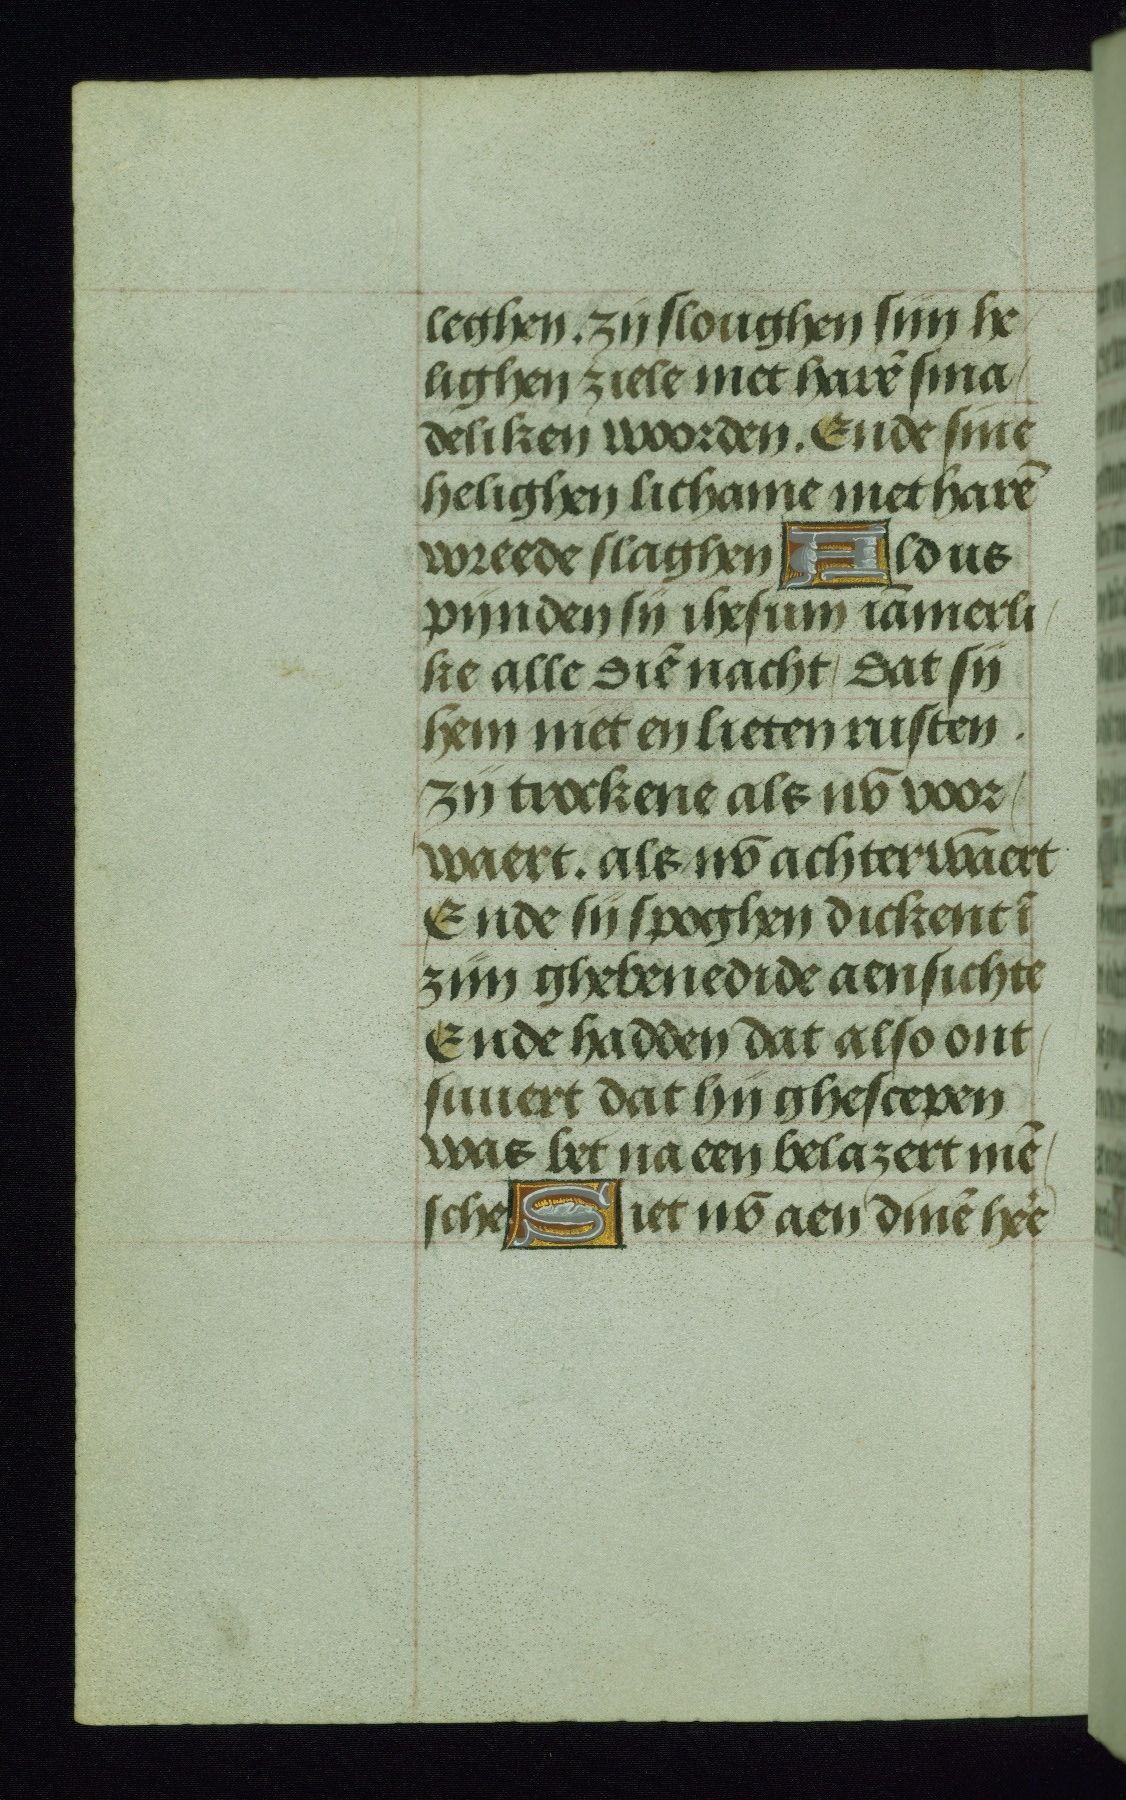 leghen. zij sloughen sijn he
lighen ziele met harē sma/
deliken woorden. Ende sine
helighen lichame met harē
wreede slaghen Aldus
pijnden sij ihesum iāmerli/
ke alle diē nacht / dat sij
hem niet en lieten rusten.
zij trockene als nv̄ voor/
waert. als nv̄ achterwāert
Ende sij spoghen dickent ī
zijn ghebenedide aensichte
Ende hadden dat also ont/
suuert dat hij ghescepen
was bet na een belazert mē/
sche Siet nv̄ aen dinē hēe